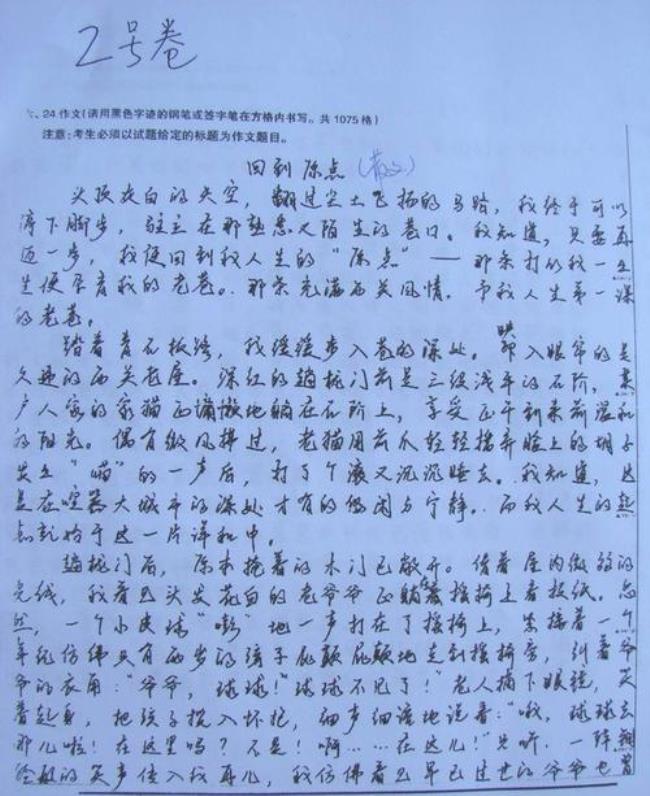 2号卷
六、24 作文(请用黑色字迹的钢笔或签字笔在方格内书写。共 1075 格)
注意:考生必须以试题给定的标题为作文题目。
回到原点 (散文)
头顶灰白的天空,翻过尘土飞扬的马路,我终于可以
停下脚步,驻立在那熟悉又陌生的巷口。我知道,只要再
迈一步,我便回到我人生的“原点”——那条打从我一出
生便孕育我的老巷。那条充满西关风情,予我人生第一课
的老巷。
踏着青石板路,我缓缓步入巷的深处。映入眼帘的是
久违的西关老屋。深红的趟栊门前是三级浅平的石阶,某
户人家的家猫正慵懒地躺在石阶上,享受正午到来前温和
的阳光。偶有微风拂过,老猫用前爪轻轻拨弄脸上的胡子
发出“喵”的一声后,打了个滚又沉沉睡去。我知道,这
是在喧嚣大城市的深处才有的悠闲与宁静。而我人生的起
点就始于这一片详和中。
趟栊门后,原本掩着的木门已敞开。借着屋内微弱的
光线,我看见头发花白的老爷爷正躺着摇椅上看报纸。忽
然,一个小皮球“嘭”地一声打在了摇椅上,紧接着一个
年纪仿佛只有两岁的孩子屁颠屁颠地走到摇椅旁,到着爷
爷的衣角:“爷爷,球球!球球不见了!”老人摘下眼镜,笑
着起身,把孩子揽入怀抱,细声细语地说着:“哦,球球去
那儿啦!在这里吗?不是!啊……在这儿!”只听,一阵翻
的笑声传入我耳儿,我仿佛看见早已过世的爷爷也曾